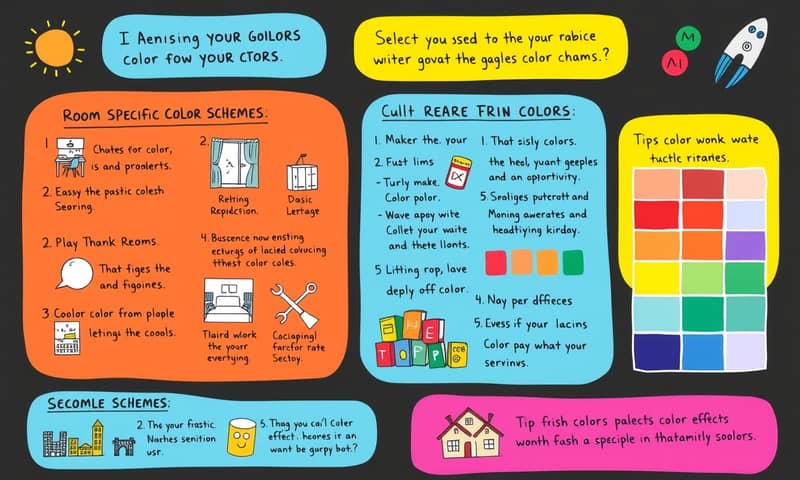 I Aenising YOUR GOILORS
color fow YOUR CTORS.
Select you ssed to the your rabice
witer govat the gagles color chams.?
M
AI
ROOM SPECIFIC COLOR SCHEMES:
1 Chates for color,
is and proalerts.
2. Easyy the pastic colesh
Seoring.
2. Play Thank Reoms.
That figes the
and figoines.
3 Coolor color from plople
letings the cooals.
2.
Retting
Repidction.
Dasic
Lertage
4. Buscence now ensting
ecturgs of lacied cobucing
tthest color coles.
Thaird work
the yousr
everrtying.
Cociapingl
farcfor rate
Sectoy.
Cullt REARE FRIN COLORS:
1. Maker the. your
2. Fuzt lims
- Turly make.
Color polor.
- Wave apoy wite
Collet your waite
and thete llonts.
5 Litting rop, lave
deply off color.
1. That sisly colors.
the heel, yuant geeples
and an oportivity.
5. Sealiges puterott and
Moning awerates and
headtiying kirday.
4. Nay per dffieces
5. Evess if your lacins
Color pay what your
servinus.
Tips color wonk wate
tuctle ritaries.
SECOMLE SCHEMES:
2. The your frastic.
Naches senition
usr.
5. Thag you ca(l Coler
effect. heores ir an
want be gurpy bot.?
Tip frish colors palects color effects
wonth fash a speciple in thatamily soolors.